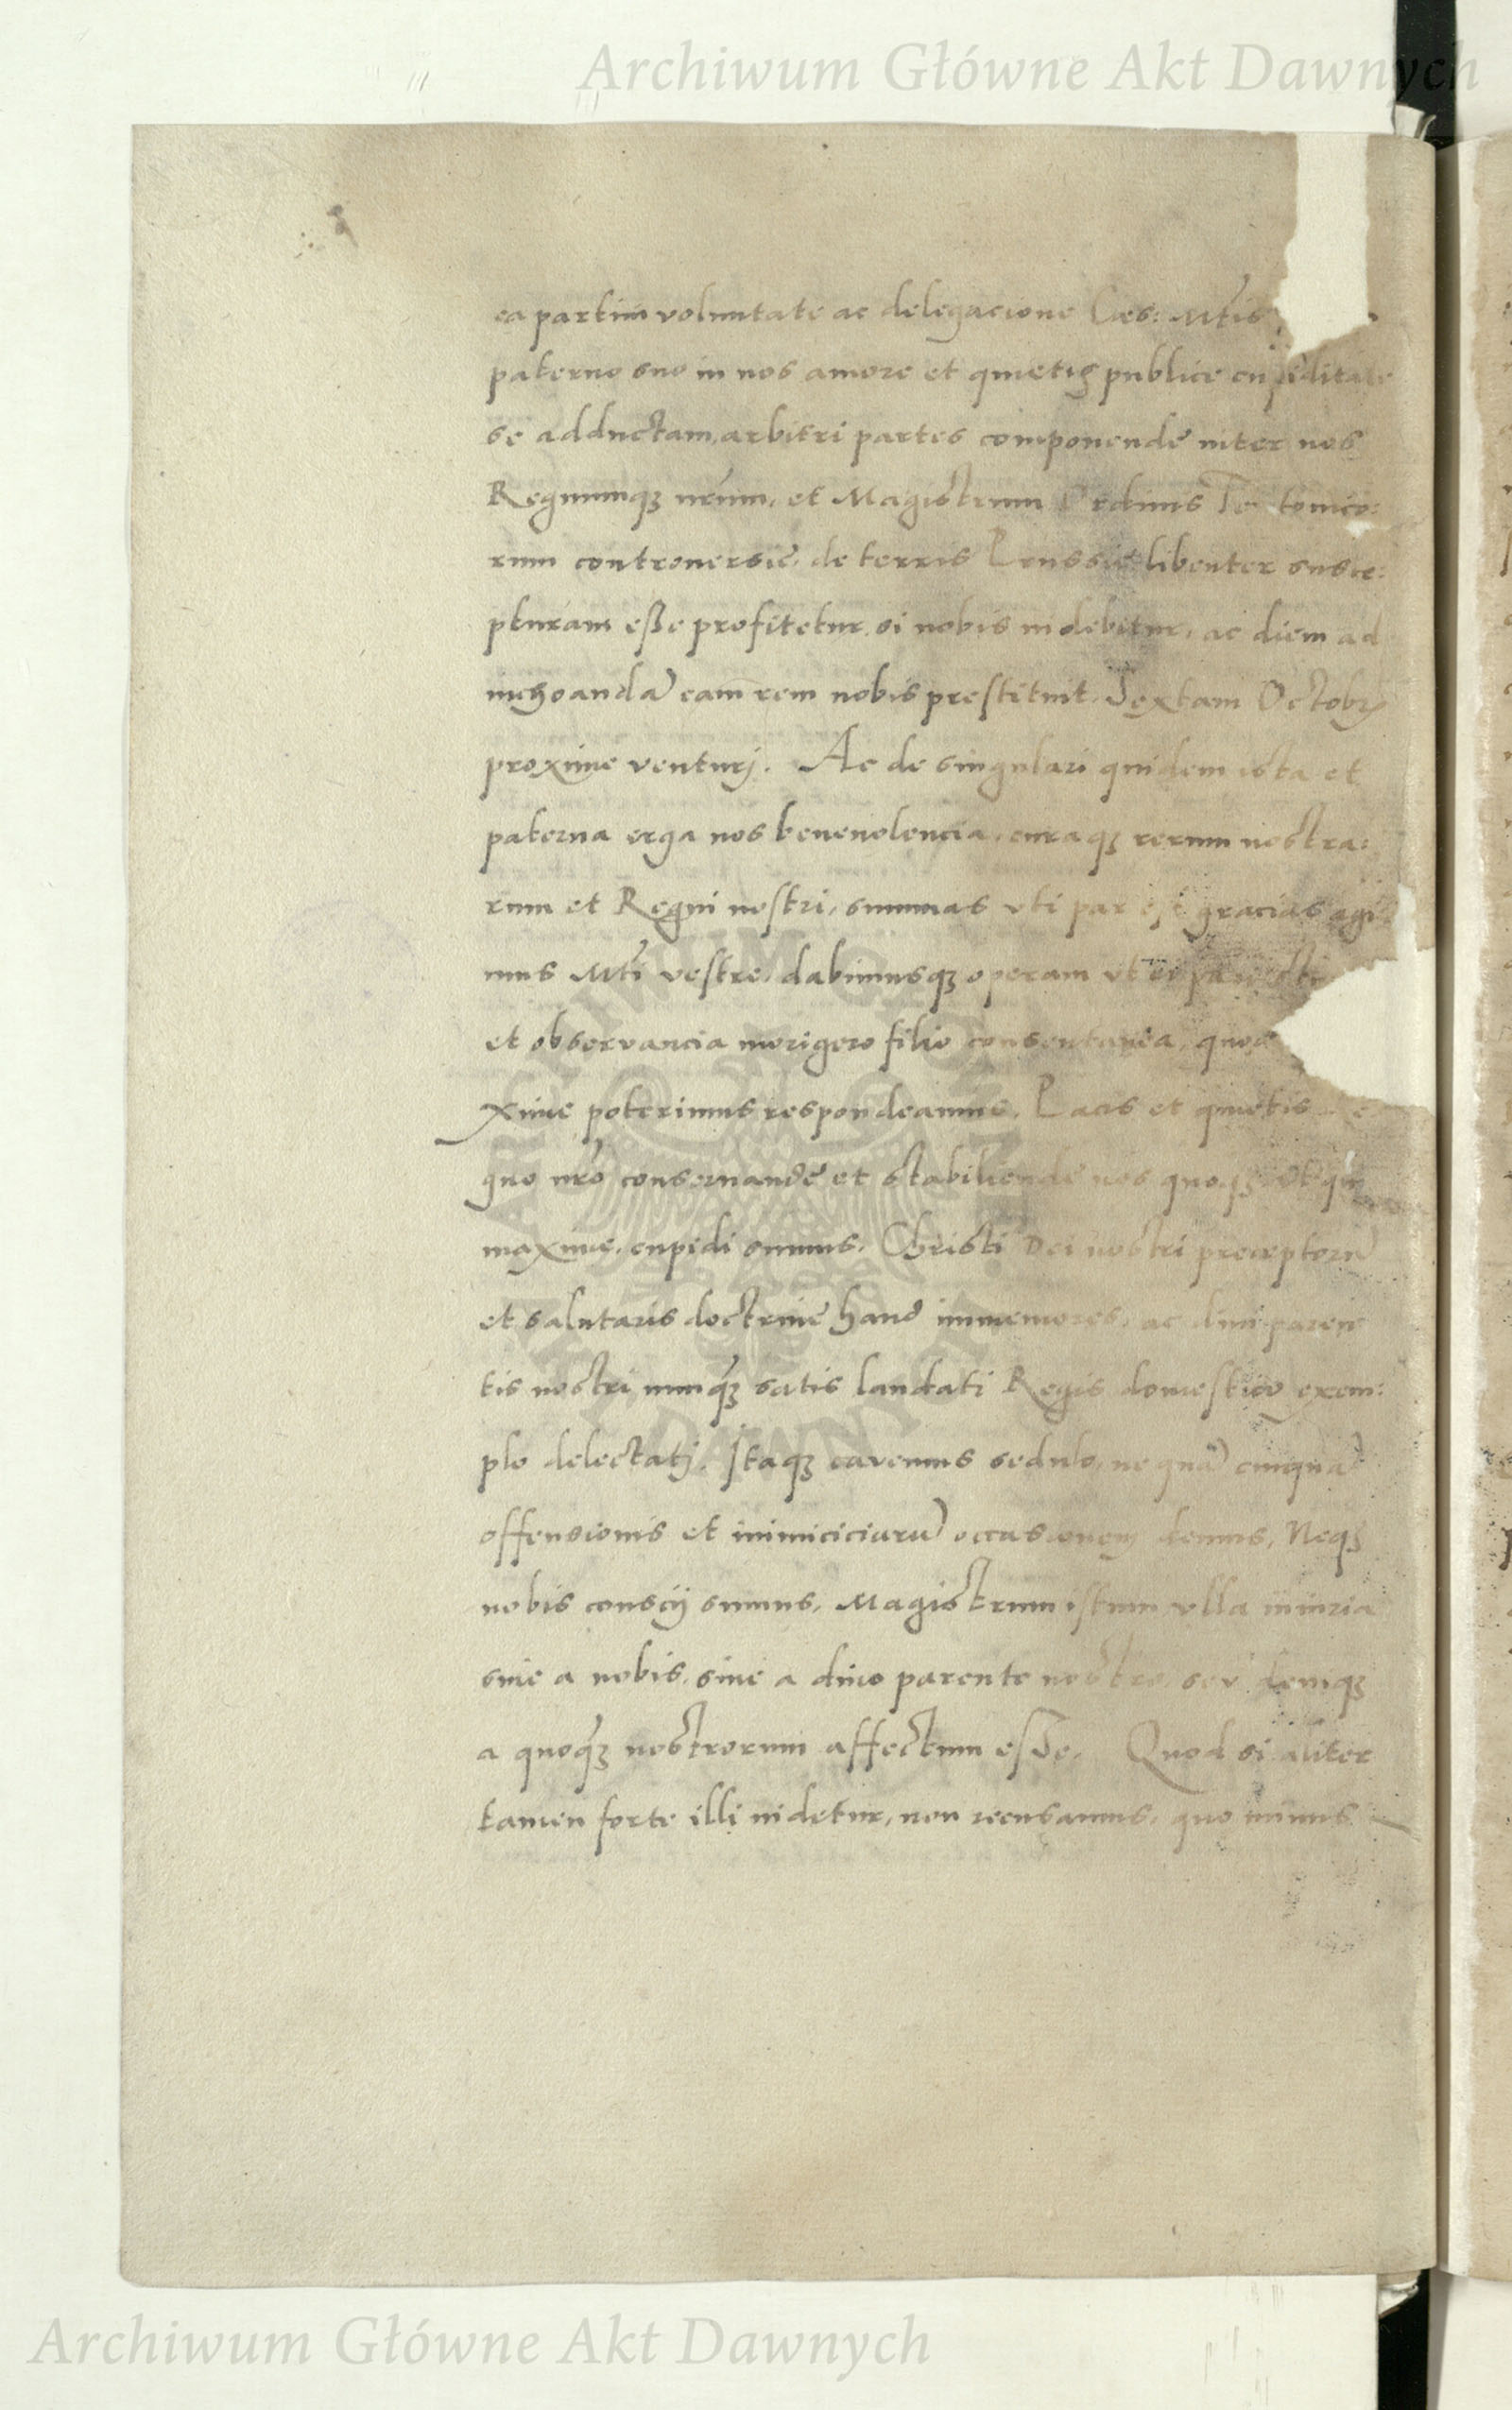 Archiwum Główne Akt Dawnych
ea partim voluntate ac delegacione Caes: Mtis
paterno suo in nos amore et quietis publice cupiditate
se adductam, arbitri partes componendę inter nos
Regnumq₃ nrũm, et Magistrum Ordinis Teutonico:
rum controuersię, de terris Prussię libenter susce:
pturam eße profitetur, si nobis uidebitur, ac diem ad
inchoandã eam rem nobis prestituit, Sextam Octobris
proxime venturj. Ac de singulari quidem ista et
paterna erga nos beneuolencia, curaq₃ rerum nostra:
rum et Regni nostri, summas vti par est gracias agi
mus Mti vestre, dabimusq₃ operam vt ei
et observancia morigero filio consentanea, quoad
xime poterimus respondeamus. Pacis et quietis
gno nrõ conseruandę et stabiliendę nos quoq₃
maxime, cupidi sumus, Christi Dei nostri preceptorũ
et salutaris doctrinę haud immemores, ac diui paren
tis nostri nunq̃₃ satis laudati Regis domestico exem:
plo delectatj. Itaq₃ cavemus sedulo, ne quã cuiquã
offensionis et inimiciciarũ occasionem demus, Neq₃
nobis conscij sumus, Magistrum istum vlla iniuria
siue a nobis, siue a diuo parente nostro, seu deniq₃
a quoq̃₃ nostrorum affectum esse. Quod si aliter
tamen forte illi uidetur, non recusamus, quo minus
Archiwum Główne Akt Dawnych